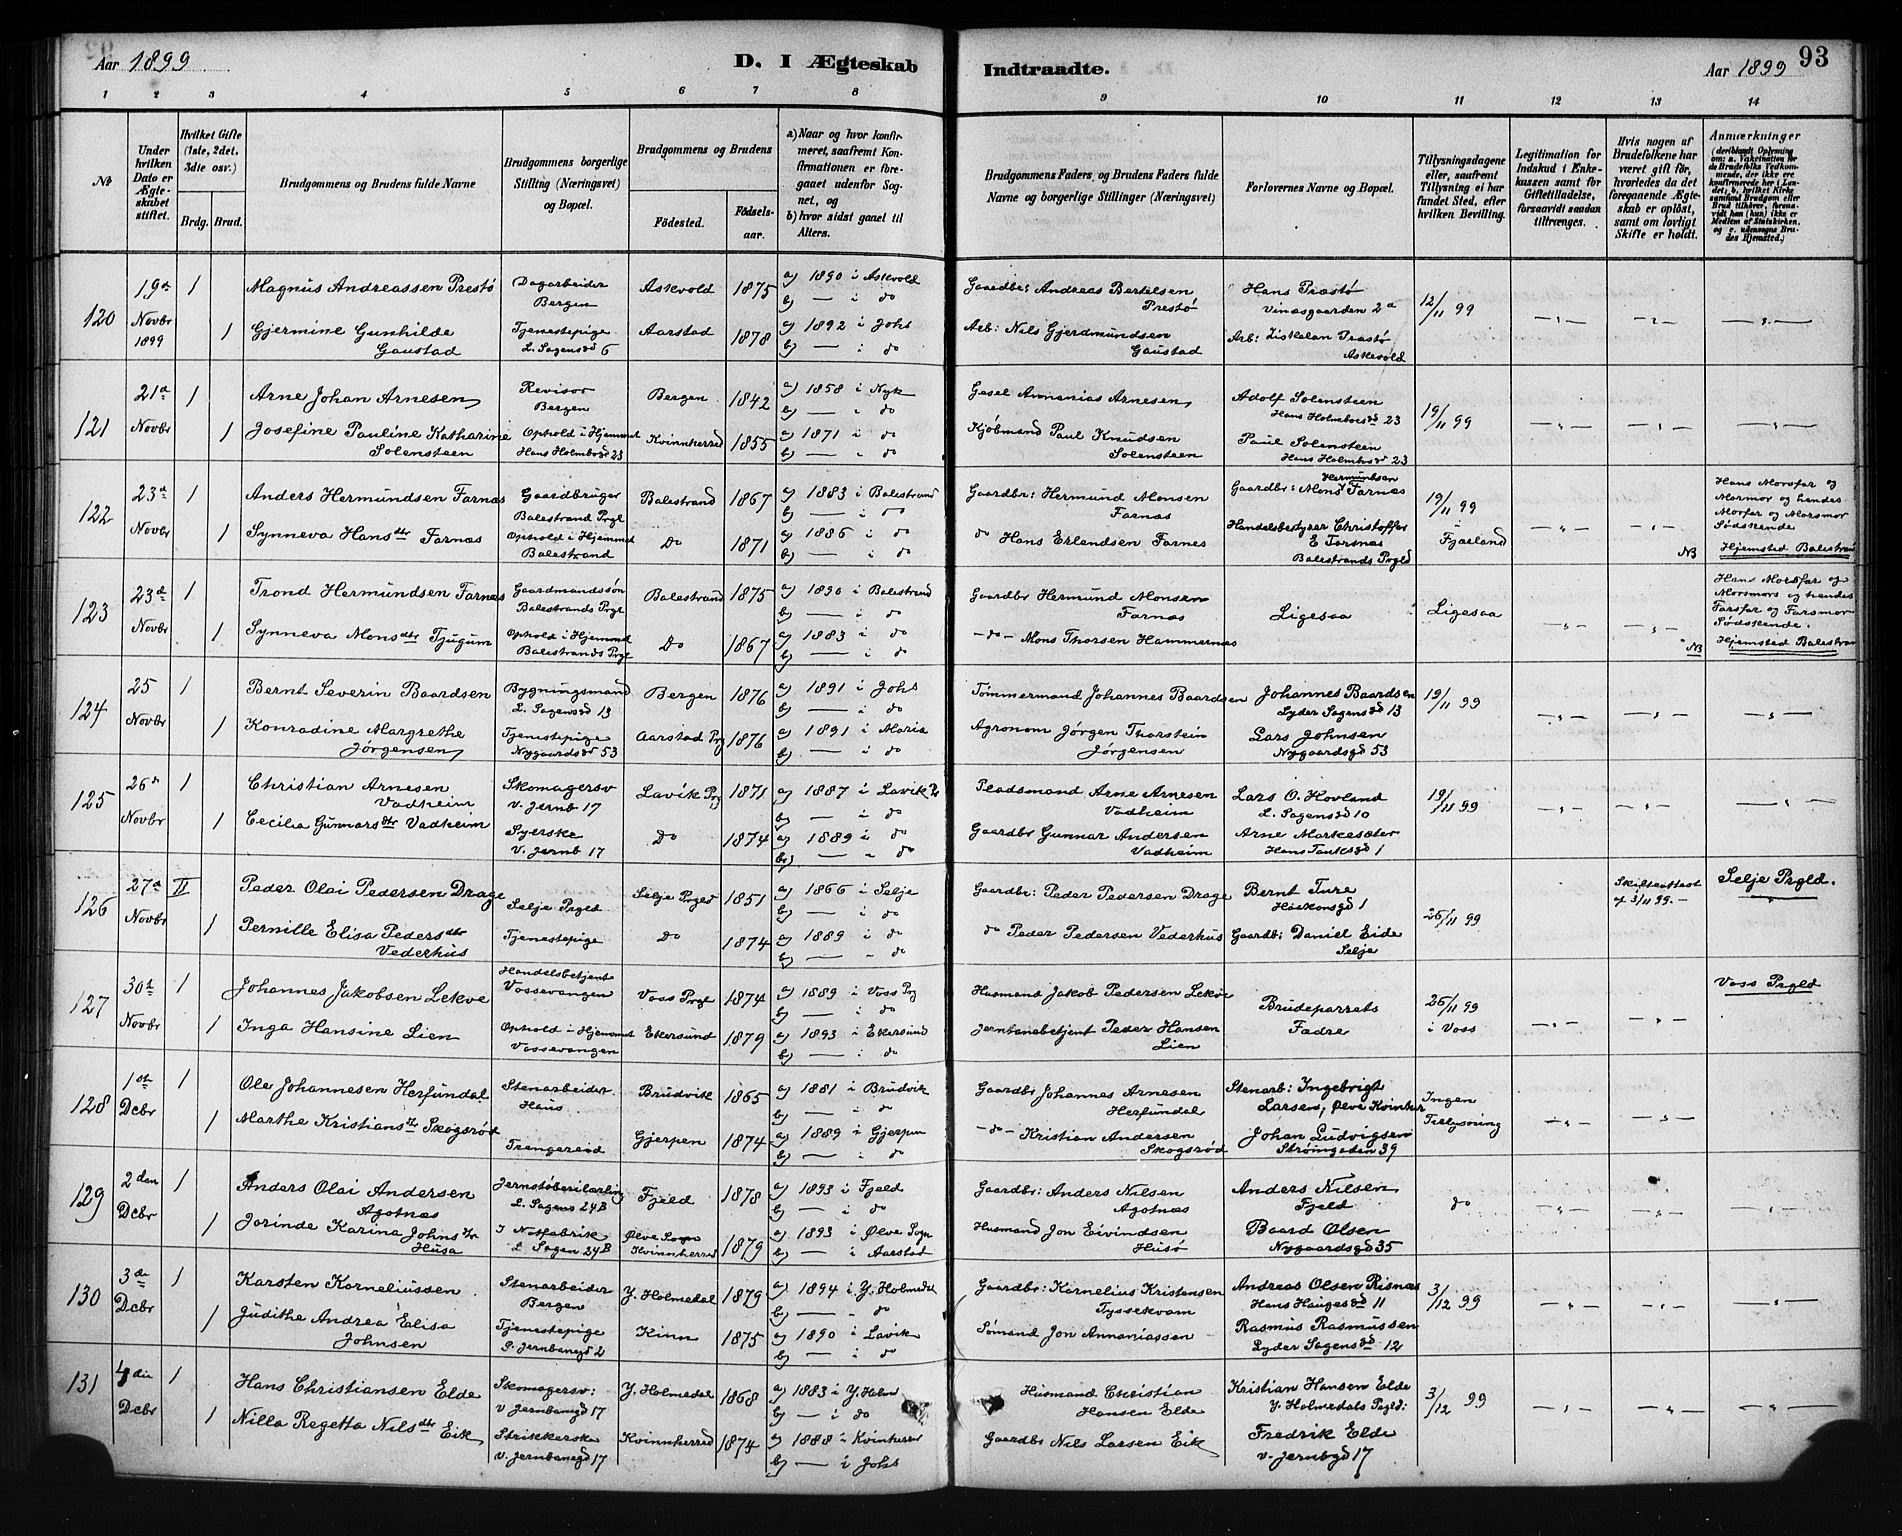 Aar 1899
D. I Ægteskab
Indtraadte.
Aar 1899
93
1 2 3 4 5 6 7 8 9 10 11 12 13 14
№
Under hvilken Dato er Ægteskabet stiftet.
Hvilket Gifte (1ste, 2det, 3dte osv.)
Brdg. Brud.
Brudgommens og Brudens fulde Navne
Brudgommens borgerlige Stilling (Næringsvei) og Bopæl.
Brudgommens og Brudens
Fødested.
Fødselsaar.
a) Naar og hvor konfirmeret, saafremt Konfirmationen er foregaaet udenfor Sognet, og
b) hvor sidst gaaet til Alters.
Brudgommens Faders og Brudens Faders fulde Navne og borgerlige Stillinger (Næringsvei)
Forlovernes Navne og Bopæl.
Tillysningsdagene eller, saafremt Tillysning ei har fundet Sted, efter hvilken Bevilling.
Legitimation for Indskud i Enkekassen samt for Giftetilladelse, forsaavidt saadan tiltrænges.
Hvis nogen af Brudefolkene har været gift før, hvorledes da det foregaaende Ægteskab er opløst, samt om lovligt Skifte er holdt.
Anmærkninger
120 19de Novbr 1899 1 Magnus Andreassen Prestø Dagarbeider Bergen Askvold 1875 a) 1890 i Askvold b) — i do Gaardbr: Andreas Bertelsen Prestø Hans Præstø Vinæsgaarden 2a 12/11 99
1 Gjermine Gunhilde Gaustad Tjenestepige L. Sagensgd 6 Aarstad 1878 a) 1892 i Johs b) — i do Arb: Nils Gjerdmundsen Gaustad Arb: Præstø Askevold
121 21de Novbr 1 Arne Johan Arnesen Revisor Bergen Bergen 1842 a) 1858 i Nyk b) — i do Gesel Annanias Arnesen Adolf Solensteen Hans Holmboesgd 23 19/11 99
1 Josefine Pauline Katharine Solensteen Ophold i Hjemmet Hans Holmbogd 23 Kvinnherred 1855 a) 1871 i do b) — i do Kjøbmand Paul Knudsen Solensteen Paul Solensteen Hans Holmbsgd 23
122 23de Novbr 1 Anders Hermundsen Farnæs Gaardbruger Balestrand Prgl Balestrand 1867 a) 1883 i Balestrand b) — i do Gaardbr: Hermund Monsen Farnæs Gaardbr: Mons Hermundsen Farnæs 19/11 99 i Fjærland Hans Morsfar og Mormor og hendes Morfar og Morsmor Sødskende
1 Synneva Hansdtr Farnæs Ophold i Hjemmet Balestrand Do 1871 a) 1886 i do b) — i do do Hans Erlendsen Farnes Handelsbestyrer Christoffer E Farsnes Balestrands Prgld NB Hjemsted Balestrand
123 23de Novbr 1 Trond Hermundsen Farnæs Gaardmandssøn Balestrands Prgl Balestrand 1875 a) 1890 i Balestrand b) — i do Gaardbr Hermund Monsen Farnæs Ligesaa Ligesaa Hans Morsfar og Morsmors og hendes Farsfar og Farsmor Sødskende.
1 Synneva Monsdtr Tjugum Ophold i Hjemmet Balestrands Prgl Do 1867 a) 1883 i do b) — i do —do— Mons Thorsen Hammernæs NB Hjemsted Balestrand
124 25 Novbr 1 Bernt Severin Baardsen Bygningsmand L. Sagensgd 13 Bergen 1876 a) 1891 i Johs b) — i do Tømmermand Johannes Baardsen Johannes Baardsen Lyder Sagensgd 13 19/11 99
1 Konradine Margrethe Jørgensen Tjenestepige Nygaardsgd 53 Aarstad Prg 1876 a) 1891 i Maria b) — i do Agronom Jørgen Thorstein Jørgensen Lars Johnsen Nygaardsgd 53
125 26de Novbr 1 Christian Arnesen Vadheim Skomagersv v. Jernb 17 Lavik Prg 1871 a) 1887 i Lavik Pr b) — i do Pladsmand Arne Arnesen Vadheim Lars O. Hovland L. Sagensgd 10 19/11 99
1 Cecilia Gunnarsdtr Vadheim Syerske v. Jernb 17 Do 1874 a) 1889 i do b) — " do Gaardbr Gunnar Andersen Vadheim Arne Markesæter Hans Tanksgd 1
126 27de Novbr II Peder Olai Pedersen Drage Selje Prgld Selje Prgld 1851 a) 1866 i Selje b) — i do Gaardbr: Peder Pedersen Drage Bernt Ture Haakonsgd 1 26/11 99 Skifteattest af 3/11 99.— Selje Prgld.
1 Pernille Elisa Pedersdtr Vederhus Tjenestepige Do 1874 a) 1889 i do b) — " do do Peder Pedersen Vederhus Gaardb: Daniel Eide Selje
127 30te Novbr 1 Johannes Jakobsen Lekve Handelsbetjent Vossevangen Voss Prgl 1874 a) 1889 i Voss Prg b) — i do Husmand Jakob Pedersen Lekve Brudeparrets Fædre 26/11 99 i Voss Voss Prgld
1 Inga Hansine Lien Ophold i Hjemmet Vossevangen Ekersund 1879 a) 1893 i Ekersund b) — i do Jernbanebetjent Peder Hansen Lien
128 1ste Dcbr 1 Ole Johannesen Herfundal Stenarbeider Haus Brudvik 1865 a) 1881 i Brudvik b) — i do Gaardbr Johannes Arnesen Herfundal Stenarb: Ingebrigt Larsen, Ølve Kvinher Ingen Tillysning
1 Marthe Kristiansdtr Skogsrød Trengereid Gjerpen 1874 a) 1889 i Gjerpen b) — i do —do— Kristian Andersen Skogsrød Johan Ludvigsen Strømgaden 39
129 2den Dcbr 1 Anders Olai Andersen Agotnæs L. Sagens 24B Fjeld 1878 a) 1893 i Fjeld b) — i do Gaardbr: Anders Nilsen Agotnæs Anders Nilsen Fjeld do
1 Jorinde Karina Johnsdtr Husa I Notfabrik L Sagen 24B Ølve Sogn Kvinnherred 1879 a) 1893 i Ølve Sogn b) — i Aarstad Husmand Jon Eivindsen Husø Baard Olsen Nygaardsgd 35
130 3de Dcbr 1 Karsten Korneliussen Stenarbeider Bergen Y. Holmedal 1879 a) 1894 i Y. Holmedal b) — i do Gaardbr: Kornelius Kristensen Tyssekvam Andreas Olsen Risnæs Hans Haugesgd 11 3/12 99
1 Judithe Andrea Elisa Johnsen Tjenestepige S. Jernbanegd 2 Kinn 1875 a) 1890 i Lavik b) — i do Sømand Jon Annaniassen Rasmus Rasmussen Lyder Sagensgd 12
131 4de Dcbr 1 Hans Christiansen Elde Skomagersv: v Jernbanegd 17 Y. Holmedal 1868 a) 1883 i Y. Holm b) — i do Husmand Christian Hansen Elde Kristian Hansen Elde Y. Holmedals Prgld: 3/12 99
1 Nilla Regetta Nilsdtr Eik Strikkerske v. Jernbanegd 17 Kvinnherred 1874 a) 1888 i Kvinherred b) — i Johs Gaardbr Nils Larsen Eik Fredrik Elde v. Jernbgd 17